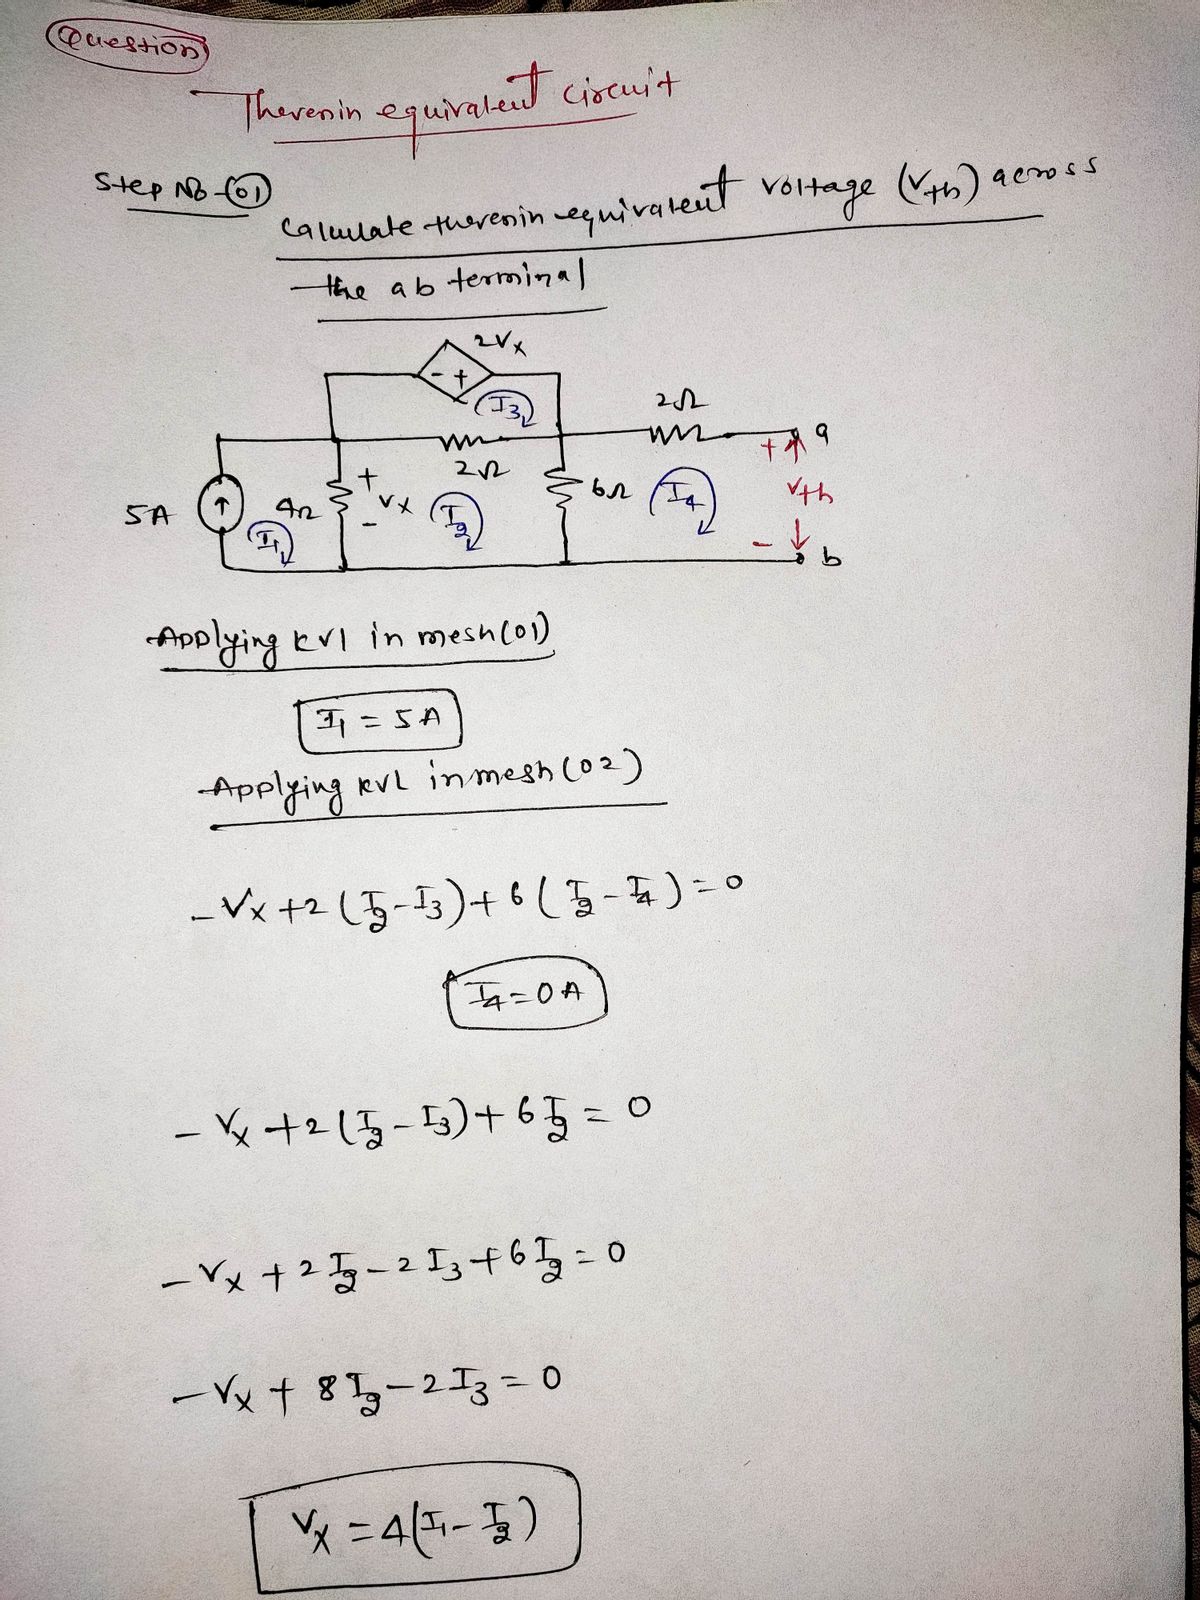 Question
Thevenin equivalent circuit
Step No-(01)
Calculate thevenin equivalent voltage (Vth) across
the ab terminal
2Vx
- +
I3
2Ω
a
+
2Ω
5A
4Ω
+
Vx
-
I1
I2
6Ω
I4
Vth
-
b
Applying KVl in mesh(01)
I1 = 5A
Applying KVL in mesh(02)
-Vx+2(I2-I3)+6(I2-I4)=0
I4=0A
-Vx+2(I2-I3)+6I2=0
-Vx+2I2-2I3+6I2=0
-Vx+8I2-2I3=0
Vx=4(I1-I2)